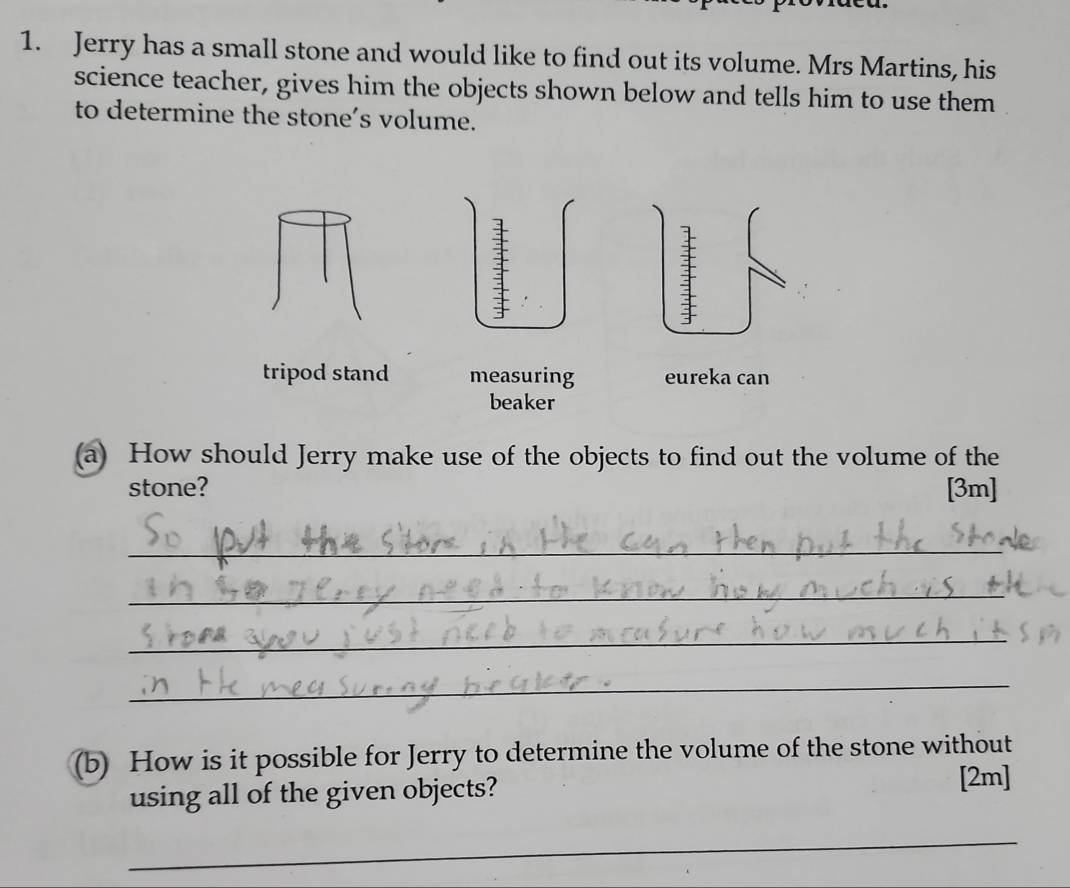 1. Jerry has a small stone and would like to find out its volume. Mrs Martins, his
science teacher, gives him the objects shown below and tells him to use them
to determine the stone's volume.
tripod stand
measuring
beaker
eureka can
(a) How should Jerry make use of the objects to find out the volume of the
stone? [3m]
So put the stone in the can then put the stone
in so jerry need to know how much is the
stone you just need to measure how much it
in the measuring beaker.
(b) How is it possible for Jerry to determine the volume of the stone without
using all of the given objects? [2m]